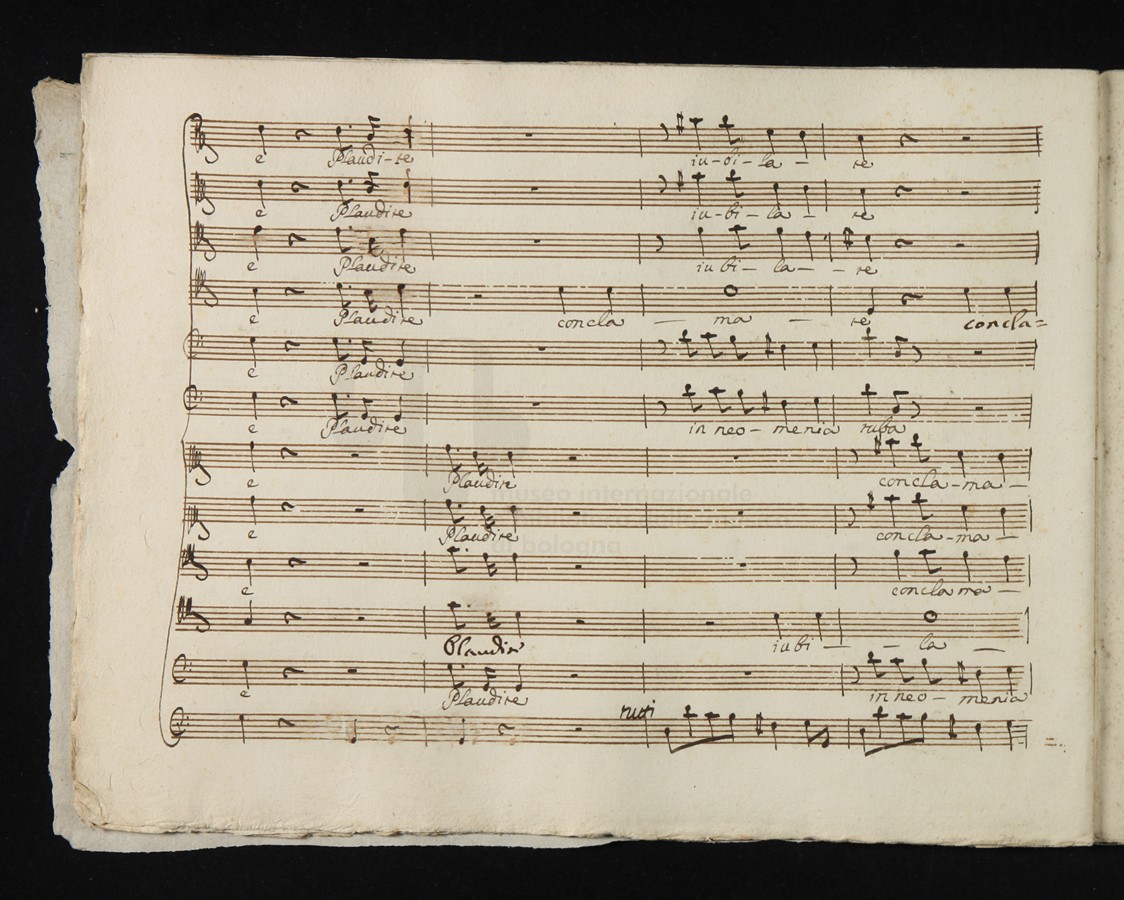 e Plaudi-te iu-bi-la - te
e Plaudite iu-bi-la - te
e Plaudite iu bi-la- - te
e Plaudite concla - ma - te concla=
e Plaudite
e Plaudite in neo-menia tuba
e Plaudite concla-ma-
e Plaudite concla-ma-
e concla ma-
Plaudite iubi - - la -
e Plaudite in neo- menia
tutti
museo internazionale
di bologna